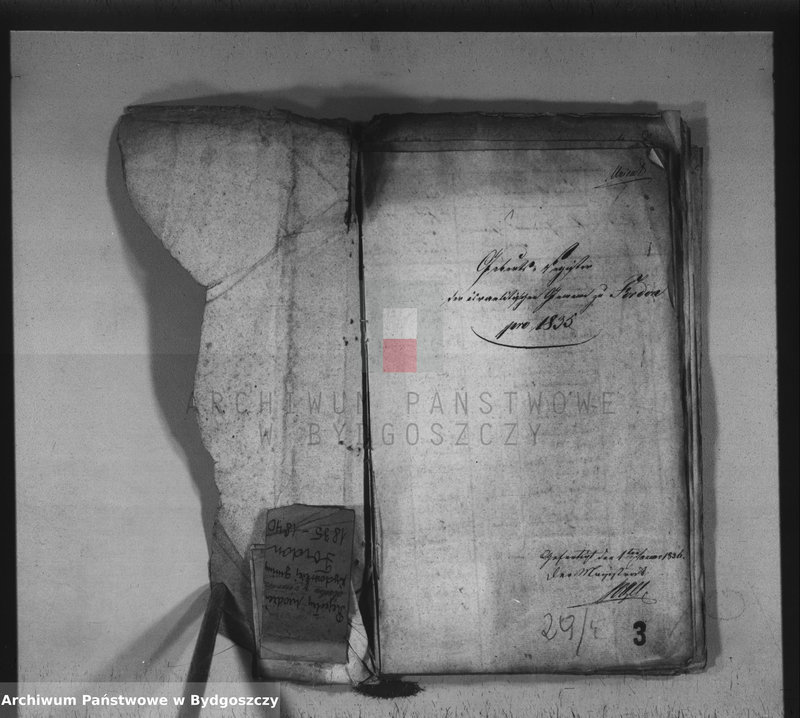 Geburts-Register
der israelitischen Gemeinde zu Fordon
pro 1835
Gefertigt den 1ten Januar 1836.
Der Magistrat
29/4
3
1835-1840
Fordon
ARCHIWUM PAŃSTWOWE
W BYDGOSZCZY
Archiwum Państwowe w Bydgoszczy